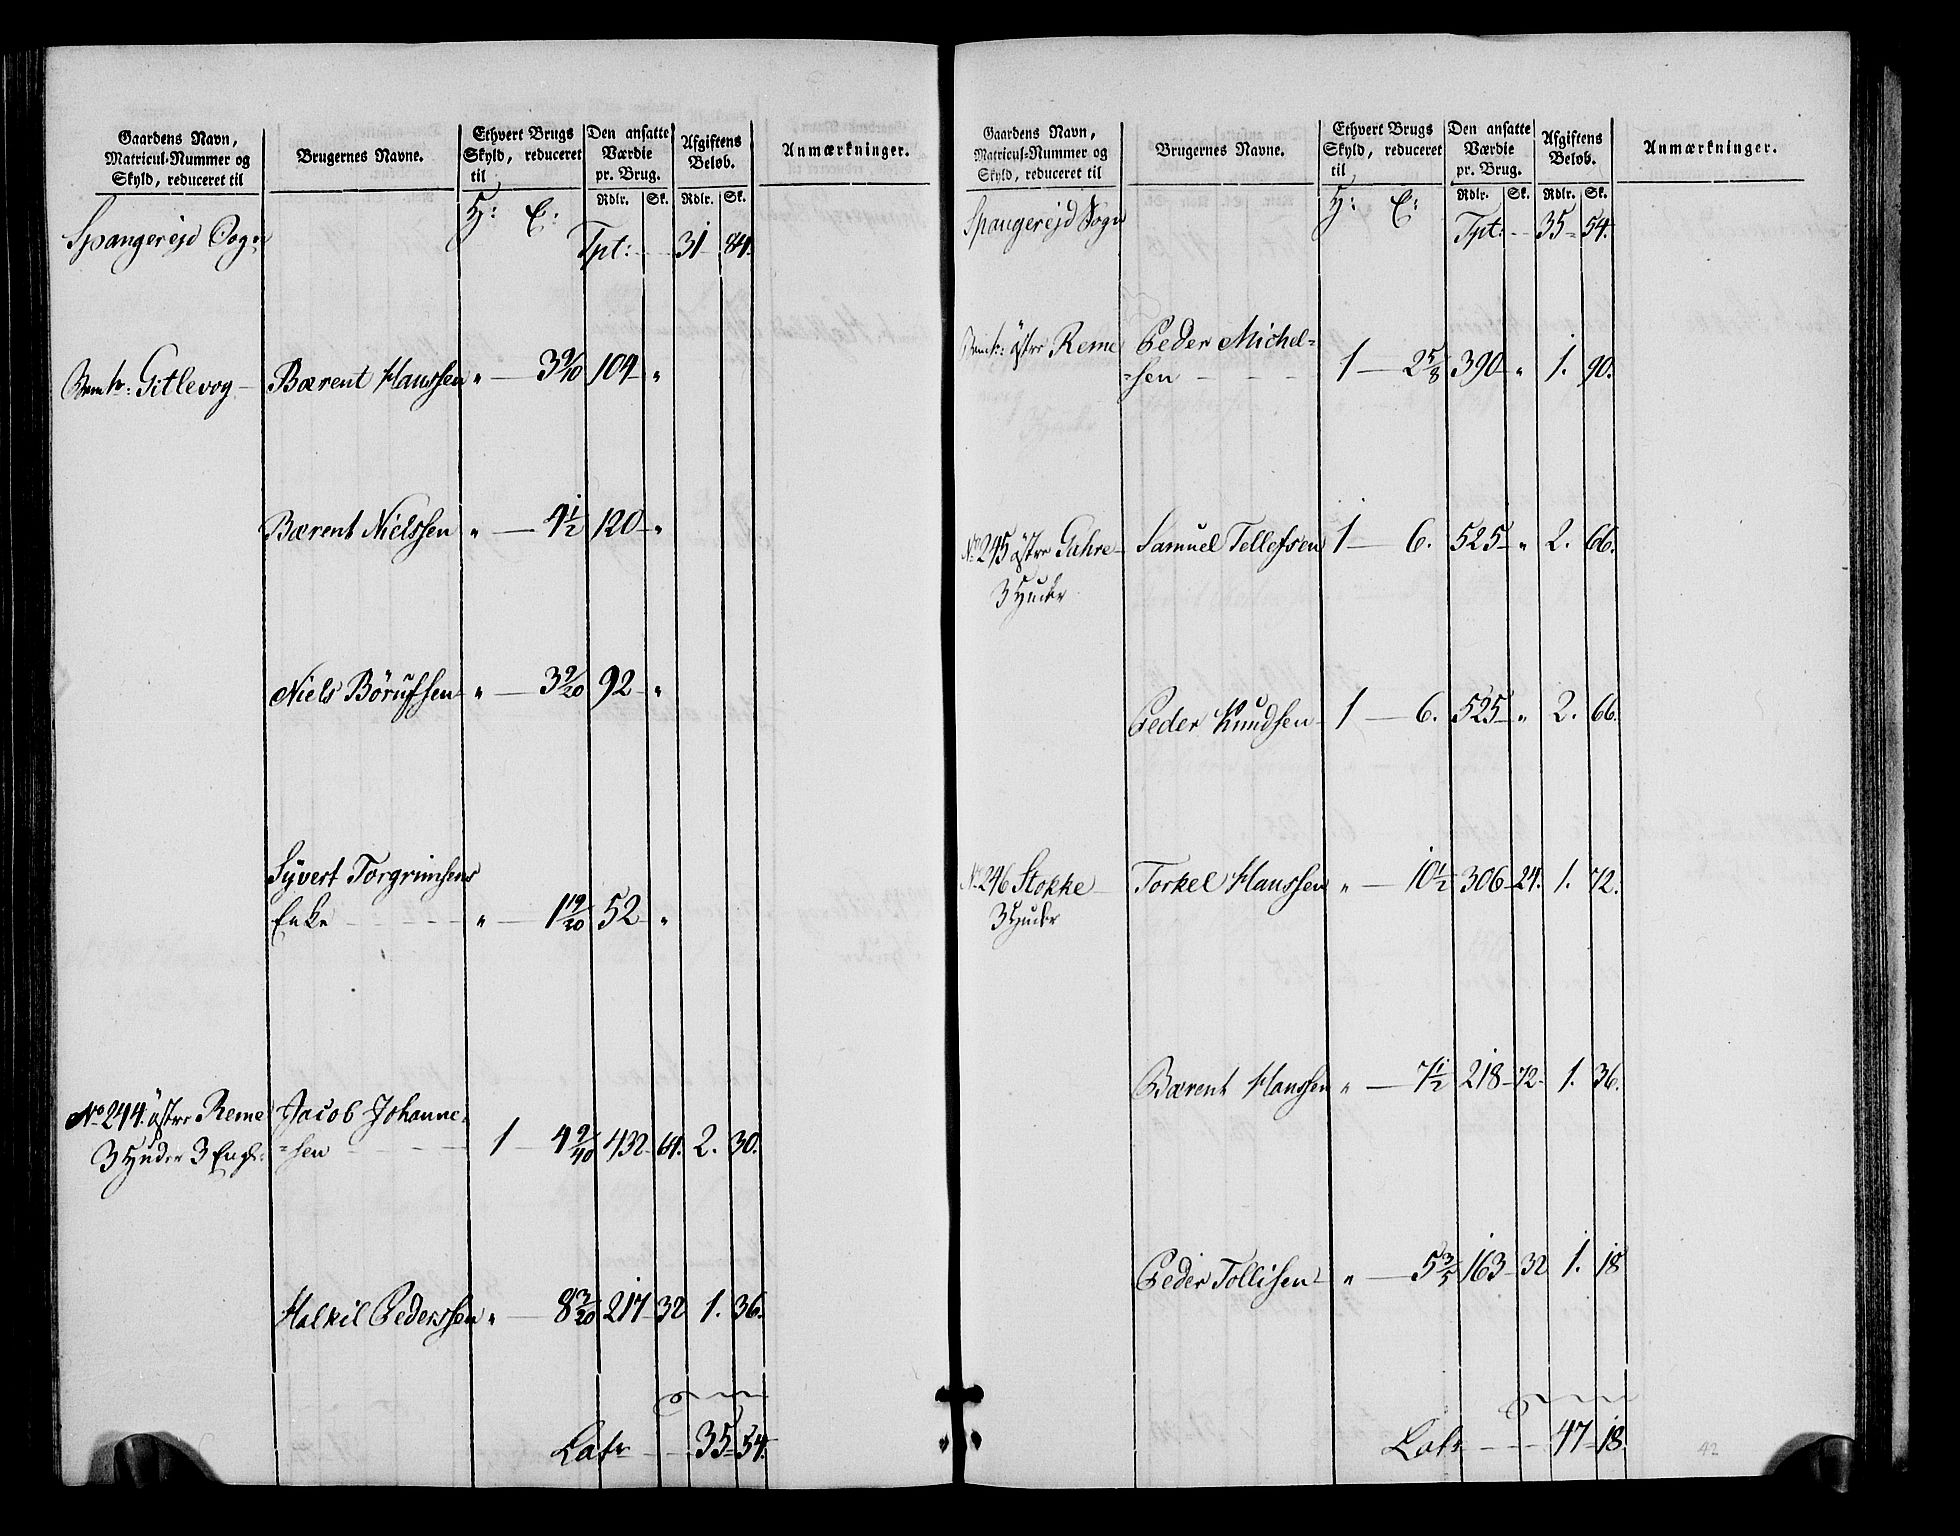 Gaardens Navn, Matricul-Nummer og Skyld, reduceret til
Brugernes Navne.
Ethvert Brugs Skyld, reduceret til
Den ansatte Værdie pr. Brug.
Afgiftens Beløb.
Anmærkninger.
Rdlr. Sk. Rdlr. Sk.
Spangerejd Sogn H: E: Tpt: 31 84.
Gitlevog Bærent Hanssen " 3 9/10 104 "
Bærent Nielssen " 4 1/2 120 "
Niels Börufsen " 3 9/20 92 "
Syvert Torgrimsens
Enke " 1 19/20 52 "
No 244. östre Reme Jacob Johanne-
3 Huder 3 Engl: =sen 1 4 9/40 432 64. 2. 30.
Halkil Pederssen " 8 3/20 217 32 1. 36.
Late 35 54.
Gaardens Navn, Matricul-Nummer og Skyld, reduceret til
Brugernes Navne.
Ethvert Brugs Skyld, reduceret til
Den ansatte Værdie pr. Brug.
Afgiftens Beløb.
Anmærkninger.
Rdlr. Sk. Rdlr. Sk.
Spangerejd Sogn H: E: Tpt: 35 54.
östre Reme Peder Michel=
=sen 1 2 5/8 390 " 1. 90.
No 245 östre Gahre Samuel Tellefsen 1 6. 525 " 2. 66.
3 Huder
Peder Knudsen 1 6. 525 " 2. 66.
No 246 Stokke Torkel Hanssen " 10 1/2 306 24. 1. 72.
3 Huder
Bærent Hanssen " 7 1/2 218 72 1. 36.
Peder Tollisen " 5 3/5 163 32 1. 18
Late 47 18.
42